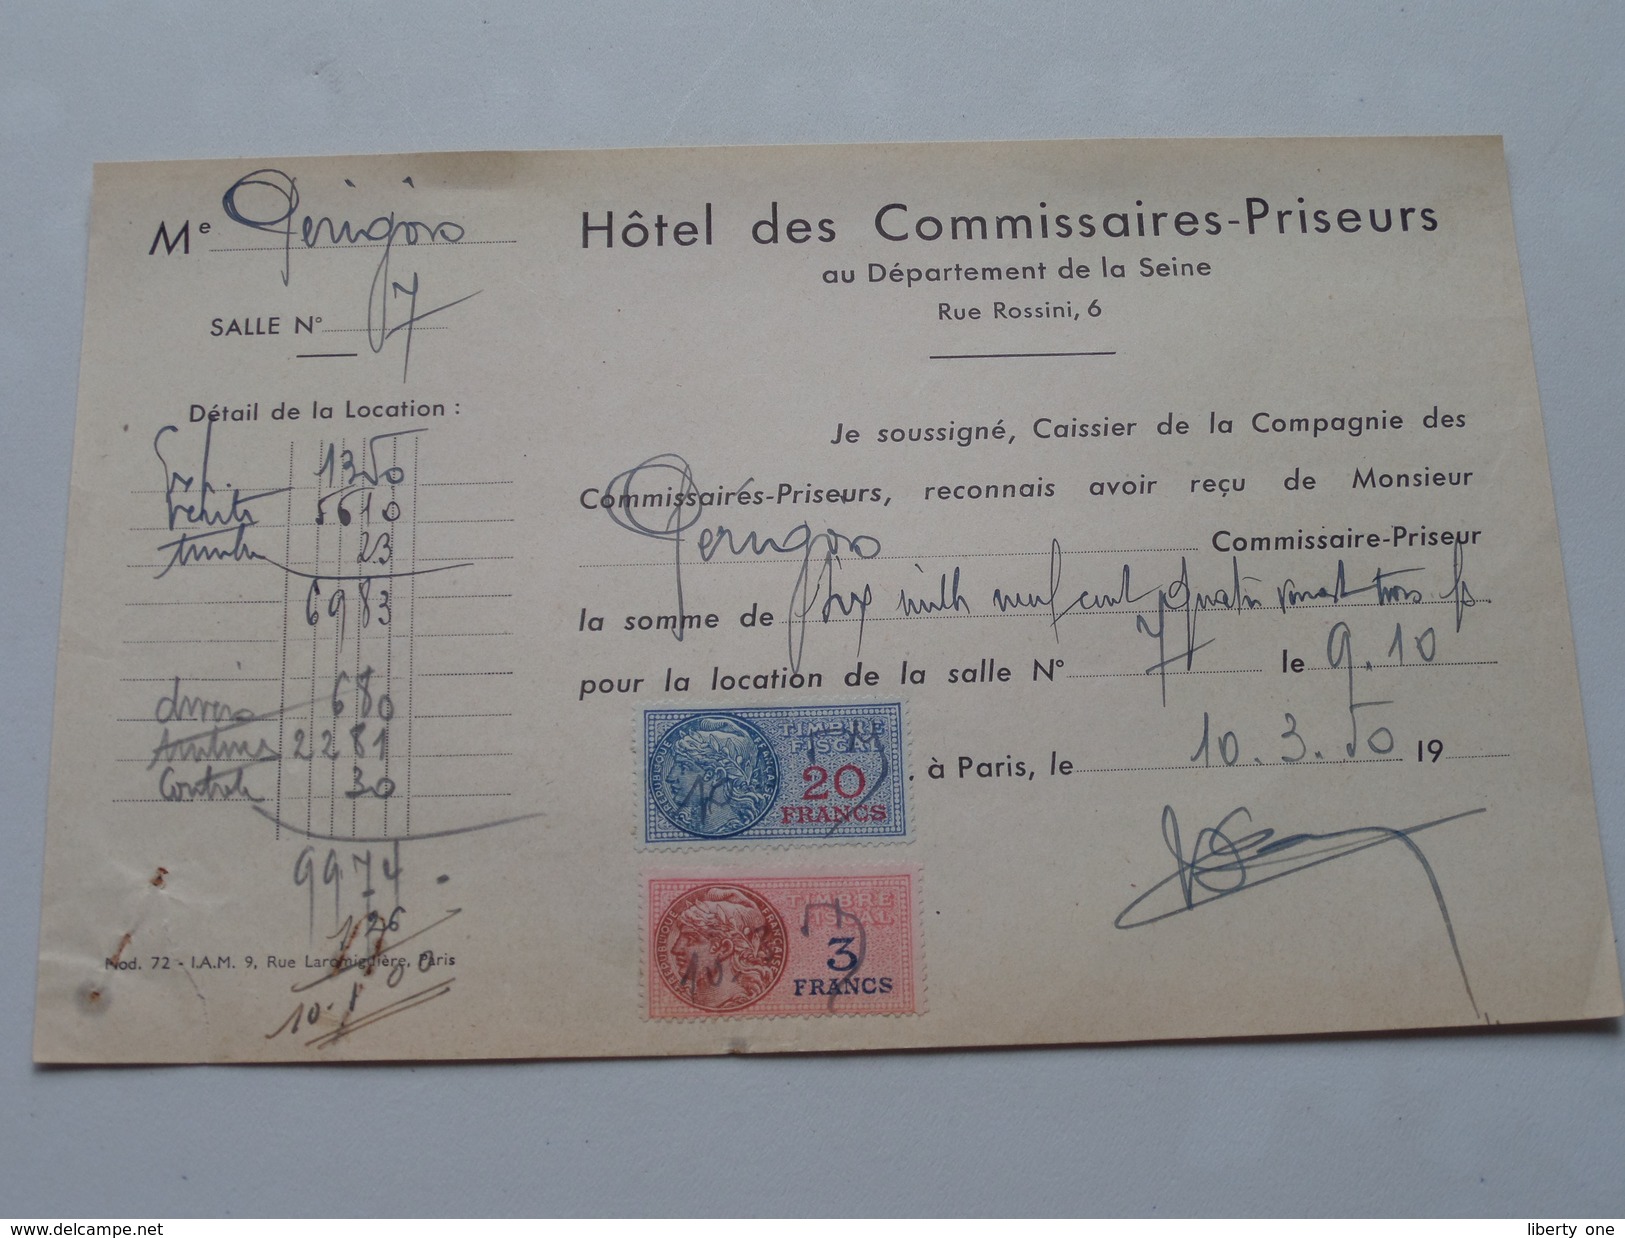 Me Perigoro
SALLE N° 7
Détail de la Location :
1350
5610
timbre 23
6983
divers 680
2281
Controle 30
9974
26
10.1
Mod. 72 - I.A.M. 9, Rue Laromiguière, Paris
Hôtel des Commissaires-Priseurs
au Département de la Seine
Rue Rossini, 6
Je soussigné, Caissier de la Compagnie des
Commissaires-Priseurs, reconnais avoir reçu de Monsieur
Perigoro Commissaire-Priseur
la somme de six mille neuf cent quatre vingt trois fs
pour la location de la salle N° 7 le 9.10
, à Paris, le 10.3.50 19
RÉPUBLIQUE FRANÇAISE
TIMBRE
FISCAL
20
FRANCS
RÉPUBLIQUE FRANÇAISE
TIMBRE
FISCAL
3
FRANCS
www.delcampe.net
liberty one